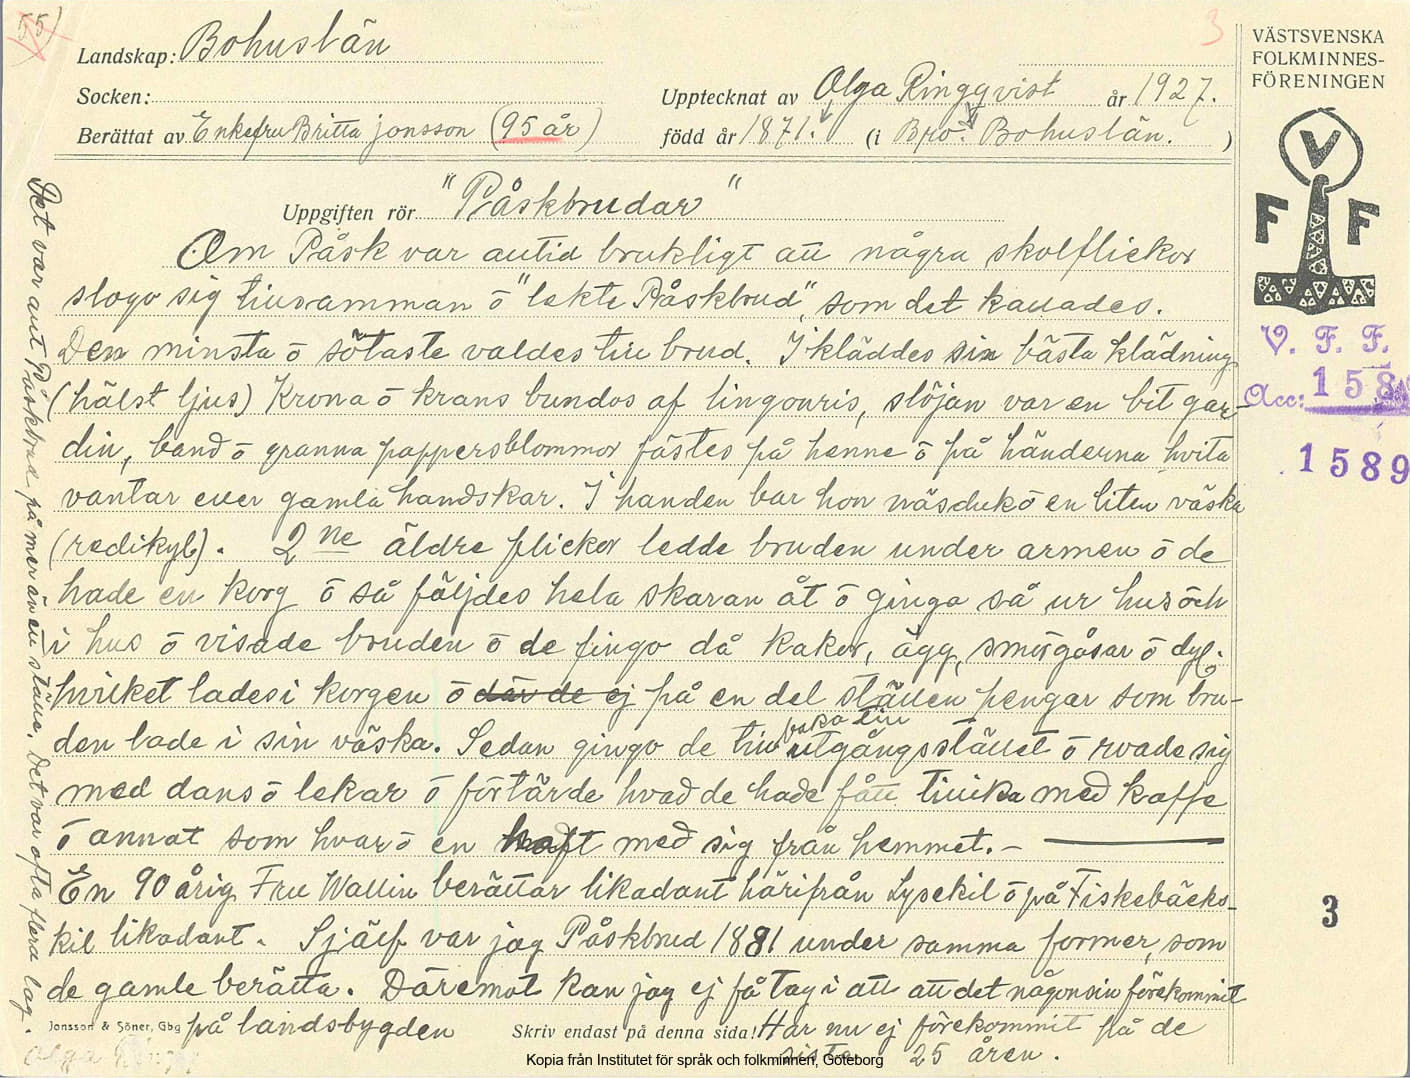 55)
3
Landskap: Bohuslän
Socken:
Upptecknat av Olga Ringqvist år 1927.
Berättat av Enkefru Britta Jonsson (95 år)
född år 1871. (i Bro. Bohuslän. )
VÄSTSVENSKA
FOLKMINNES-
FÖRENINGEN
V
F F
V. F. F.
Acc: 158
1589
3
Uppgiften rör "Påskbrudar"
Om Påsk var alltid brukligt att några skolflickor
slogo sig tillsamman o "lekte Påskbrud", som det kallades.
Den minsta o sötaste valdes till brud. I kläddes sin bästa klädning
(hälst ljus) Krona o krans bundos af lingonris, slöjan var en bit gar-
din, band o granna pappersblommor fästes på henne o på händerna hvita
vantar eller gamla handskar. I handen bar hon näsduk o en liten väska
(redikyl). 2ne äldre flickor ledde bruden under armen o de
hade en korg o så följdes hela skaran åt o gingo så ur hus och
i hus o visade bruden o de fingo då kakor, ägg, smörgåsar o dyl.
hvilket lades i korgen o där de ej på en del ställen pengar som bru-
den lade i sin väska. Sedan gingo de till baka till utgångsstället o roade sig
med dans o lekar o förtärde hvad de hade fått tillika med kaffe
o annat som hvar o en haft med sig från hemmet. —
En 90 årig Fru Wallin berättar likadant härifrån Lysekil o på Fiskebäcks-
kil likadant. Själf var jag Påskbrud 1881 under samma former, som
de gamle berätta. Däremot kan jag ej få tag i att att det någonsin förekommit
på landsbygden
Har nu ej förekommit på de
sista 25 åren.
Jonsson & Söner, Gbg
Skriv endast på denna sida!
Det var allt Påskbrud på mer än en ställe. Det var ofta flera lag.
Olga
Kopia från Institutet för språk och folkminnen, Göteborg